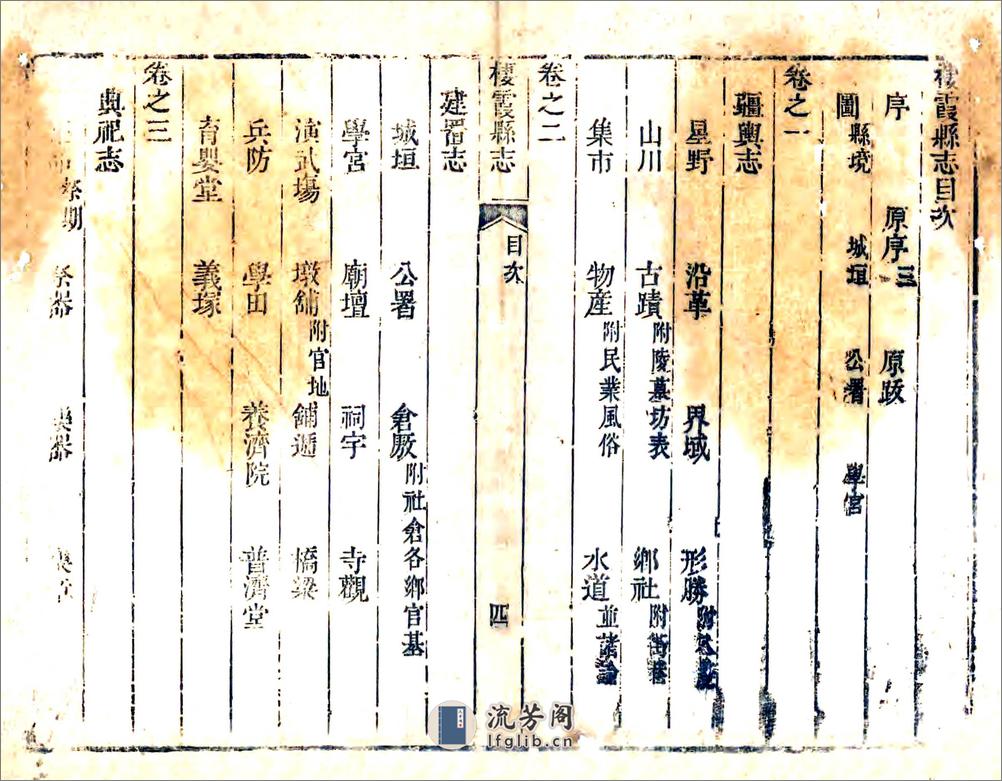 棲霞縣志目次
序 原序三 原跋
圖 縣境 城垣 公署 學宮
卷之一
疆輿志
星野 沿革 界域 形勝
山川 古蹟 附陵墓坊表 鄉社 附街巷
集市 物產 附民業風俗 水道 並諸論
卷之二
棲霞縣志 目次 四
建置志
城垣 公署 倉厫 附社倉各鄉官基
學宮 廟壇 祠宇 寺觀
演武場 墩舖 附官地 舖遞 橋梁
兵防 學田 養濟院 普濟堂
育嬰堂 義塚
卷之三
典祀志
祭期 祭器 樂器
流芳阁
lfglib.cn